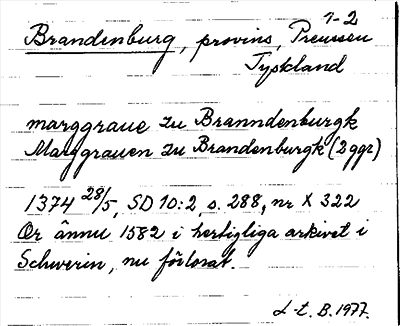 1-2
Brandenburg, provins, Preussen
Tyskland
marggraue zu Branndenburgk
Marggrauen zu Brandenburgk (2 ggr)
1374 28/5, SD 10:2, s. 288, nr X 322
Or ännu 1582 i hertigliga arkivet i
Schwerin, nu förlorat.
L-t. B. 1977.